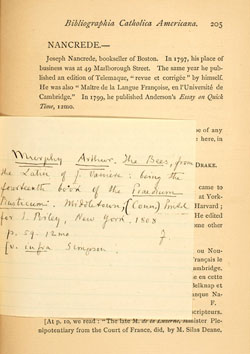 Bibliographia Catholica Americana. 205
NANCREDE.—
Joseph Nancrede, bookseller of Boston. In 1797, his place of
business was at 49 Marlborough Street. The same year he pub-
lished an edition of Telemaque, "revue et corrigée" by himself.
He was also "Maitre de la Langue Française, en l'Université de
Cambridge." In 1799, he published Anderson's Essay on Quick
Time, 12mo.
pe of any
here, in
Murphy Arthur. The Bees, from
the Latin of J. Vaniere: being the
DRAKE.
fourteenth book of the Praedium
came to
Rusticum. Middletown, (Conn.) Printed
at York-
Harvard;
for I. Riley, New York. 1808
He edited
one other
p. 59. 12mo
F.
[v. infra Simpson
ou Nou-
rançais le
ambridge.
e en cette
Belknap et
anque Na-
F.
scripteurs.
[At p. 10, we read: "The late M. de la Luzerne, Minister Ple-
nipotentiary from the Court of France, did, by M. Silas Deane,